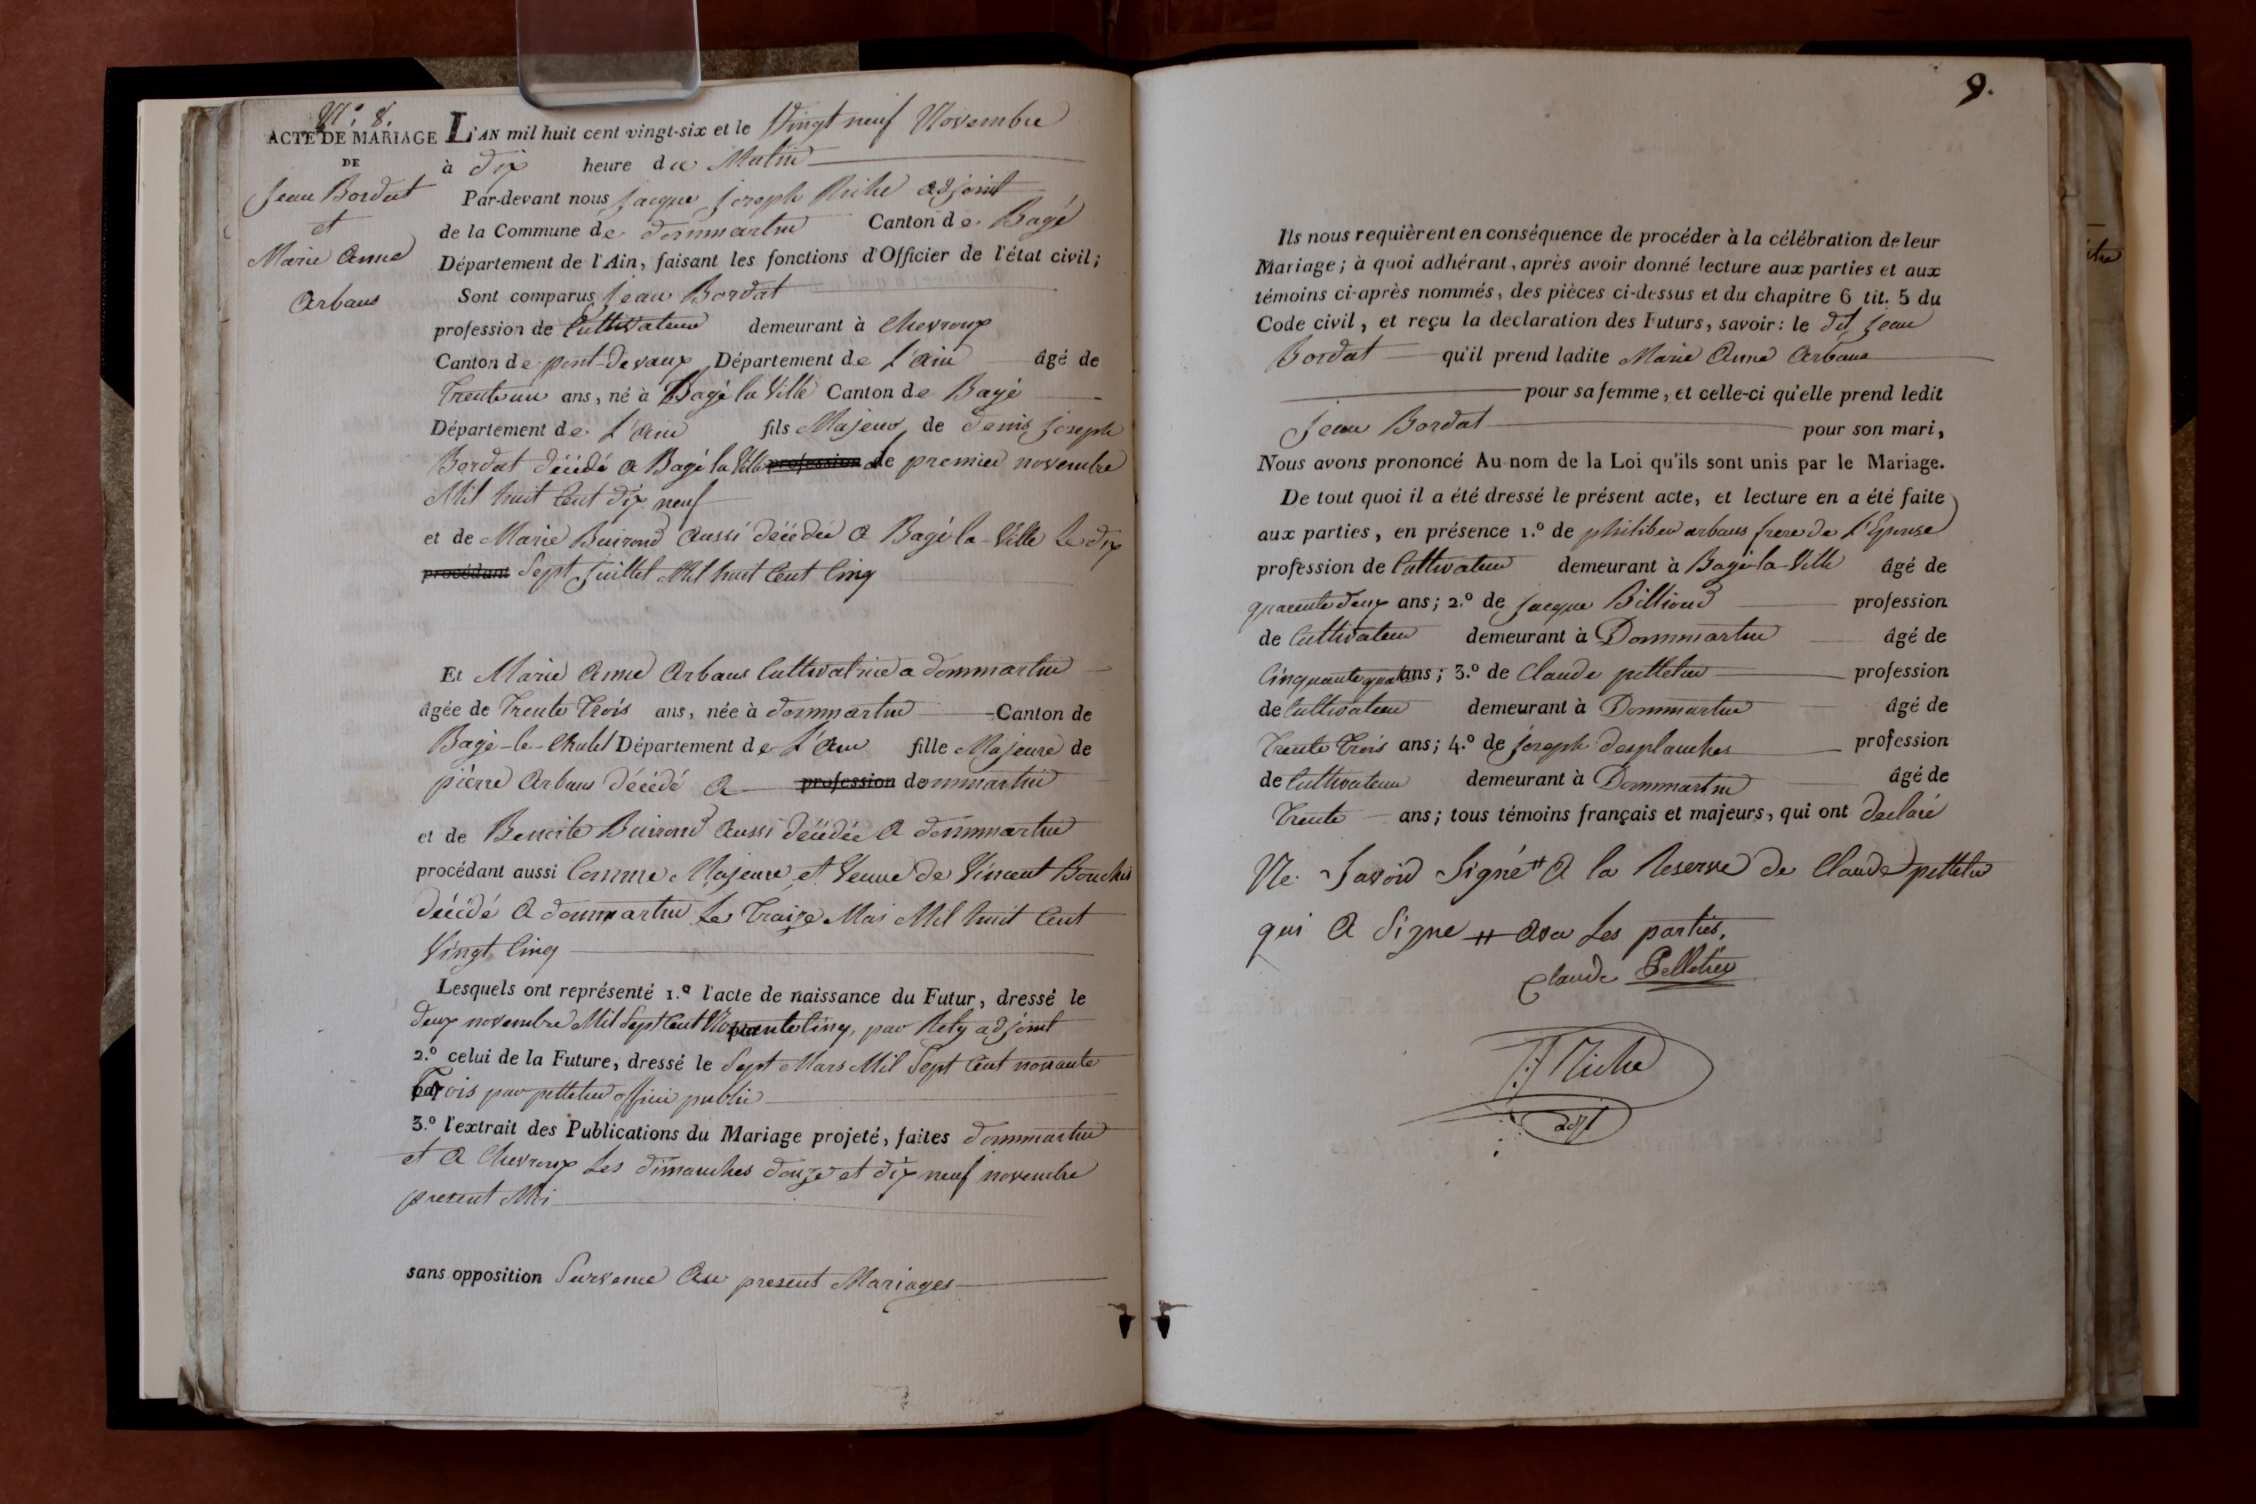 N.° 8.
ACTE DE MARIAGE
DE
Jean Bordat
et
Marie Anne
Arbans
L'AN mil huit cent vingt-six et le Vingt neuf Novembre
à dix heure du Matin
Par-devant nous Jacque Joseph Riche adjoint
de la Commune de dommartin Canton de Bagé
Département de l'Ain, faisant les fonctions d'Officier de l'état civil;
Sont comparus Jean Bordat
profession de Cultivateur demeurant à Chevroux
Canton de pont-devaux Département de L'ain âgé de
Trente un ans, né à Bagé la Ville Canton de Bagé
Département de L'ain fils Majeur de denis Joseph
Bordat décédé a Bagé la Ville profession de premier novembre
Mil huit Cent dix neuf
et de Marie Buirond aussi décédée a Bagé-la-Ville Le dix
procédant Sept Juillet Mil huit Cent Cinq
Et Marie Anne Arbans Cultivatrice a dommartin
âgée de Trente Trois ans, née à dommartin Canton de
Bagé-le-Chatel Département de L'ain fille Majeure de
pierre Arbans décédé a profession dommartin
et de Benoite Buirond aussi décédée a dommartin
procédant aussi Comme Majeure et Veuve de Vincent
décédé a dommartin Le Traize Mai Mil huit Cent
Vingt Cinq
Lesquels ont représenté 1.° l'acte de naissance du Futur, dressé le
deux novembre Mil Sept Cent Nonante Cinq, par Rety adjoint
2.° celui de la Future, dressé le Sept Mars Mil Sept Cent nonante
Trois par pelletier officier public
3.° l'extrait des Publications du Mariage projeté, faites dommartin
et a Chevroux Les dimanches douze et dix neuf novembre
present Moi
sans opposition Survenue Au present Mariages
9.
Ils nous requièrent en conséquence de procéder à la célébration de leur
Mariage; à quoi adhérant, après avoir donné lecture aux parties et aux
témoins ci-après nommés, des pièces ci-dessus et du chapitre 6 tit. 5 du
Code civil, et reçu la declaration des Futurs, savoir: le dit Jean
Bordat qu'il prend ladite Marie Anne Arbans
pour sa femme, et celle-ci qu'elle prend ledit
Jean Bordat pour son mari,
Nous avons prononcé Au nom de la Loi qu'ils sont unis par le Mariage.
De tout quoi il a été dressé le présent acte, et lecture en a été faite
aux parties, en présence 1.° de philiber arbans frere de L'Epouse
profession de Cultivateur demeurant à Bagé-la-Ville âgé de
quarente deux ans; 2.° de Jacque Billioud profession
de Cultivateur demeurant à Dommartin âgé de
Cinquante quatre ans; 3.° de Claude pelletier profession
de Cultivateur demeurant à Dommartin âgé de
Trente Trois ans; 4.° de Joseph desplanches profession
de Cultivateur demeurant à Dommartin âgé de
Trente ans; tous témoins français et majeurs, qui ont declaré
Ne Savoir Signé # a la Reserve de Claude pelletier
qui a Signe # avec Les parties.
Claude Pelletier
J:J Riche
adjt